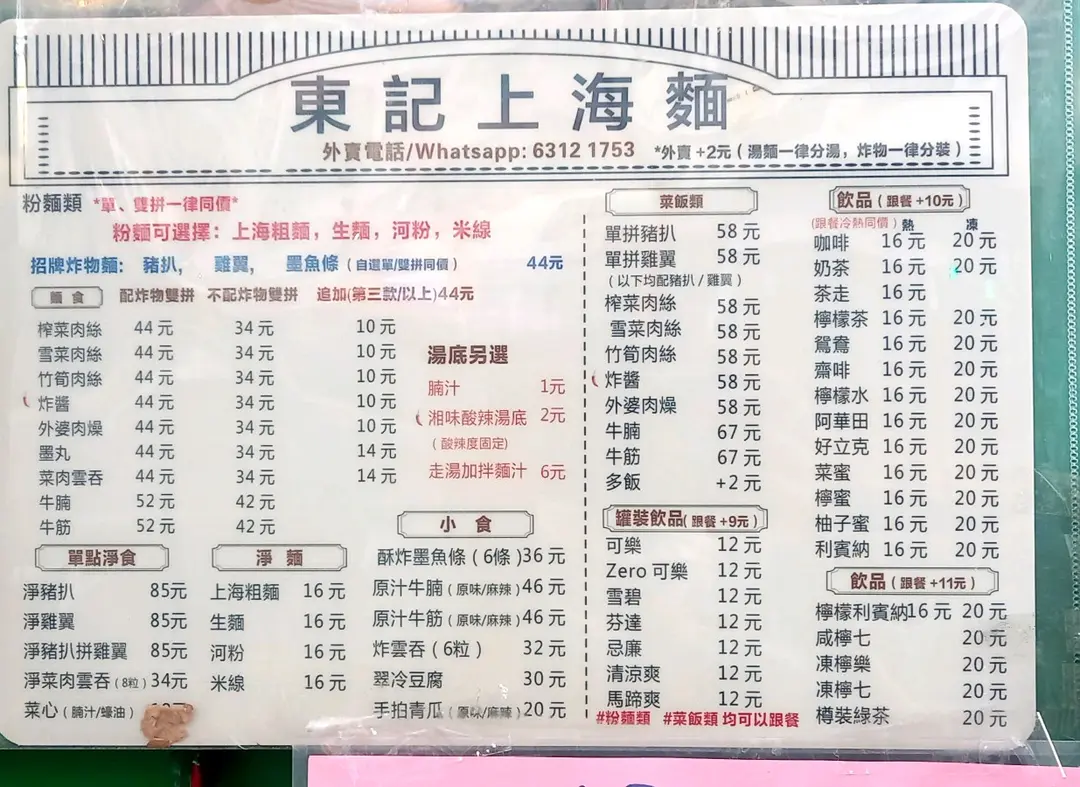 東記上海麵
外賣電話/Whatsapp: 6312 1753 *外賣 +2元 ( 湯麵一律分湯，炸物一律分裝 )
粉麵類 *單、雙拼一律同價*
粉麵可選擇：上海粗麵，生麵，河粉，米線
招牌炸物麵： 豬扒， 雞翼， 墨魚條 ( 自選單/雙拼同價 ) 44元
麵 食 配炸物雙拼 不配炸物雙拼 追加(第三款/以上)44元
榨菜肉絲 44 元 34 元 10 元
雪菜肉絲 44 元 34 元 10 元
竹筍肉絲 44 元 34 元 10 元
炸醬 44 元 34 元 10 元
外婆肉燥 44 元 34 元 10 元
墨丸 44 元 34 元 14 元
菜肉雲吞 44 元 34 元 14 元
牛腩 52 元 42 元
牛筋 52 元 42 元
湯底另選
腩汁 1元
湘味酸辣湯底 2元
( 酸辣度固定)
走湯加拌麵汁 6元
單點淨食
淨豬扒 85元
淨雞翼 85元
淨豬扒拼雞翼 85元
淨菜肉雲吞 ( 8粒 ) 34元
菜心 ( 腩汁/蠔油 )
淨 麵
上海粗麵 16 元
生麵 16 元
河粉 16 元
米線 16 元
小 食
酥炸墨魚條 ( 6條 )36 元
原汁牛腩 ( 原味/麻辣 ) 46 元
原汁牛筋 ( 原味/麻辣 ) 46 元
炸雲吞 ( 6粒 ) 32 元
翠冷豆腐 30 元
手拍青瓜 ( 原味/麻辣 ) 20 元
菜飯類
單拼豬扒 58 元
單拼雞翼 58 元
( 以下均配豬扒 / 雞翼 )
榨菜肉絲 58 元
雪菜肉絲 58 元
竹筍肉絲 58 元
炸醬 58 元
外婆肉燥 58 元
牛腩 67 元
牛筋 67 元
多飯 +2 元
罐裝飲品( 跟餐 +9元 )
可樂 12 元
Zero 可樂 12 元
雪碧 12 元
芬達 12 元
忌廉 12 元
清涼爽 12 元
馬蹄爽 12 元
#粉麵類 #菜飯類 均可以跟餐
飲品 ( 跟餐 +10元 )
(跟餐冷熱同價 ) 熱 凍
咖啡 16 元 20 元
奶茶 16 元 20 元
茶走 16 元
檸檬茶 16 元 20 元
鴛鴦 16 元 20 元
齋啡 16 元 20 元
檸檬水 16 元 20 元
阿華田 16 元 20 元
好立克 16 元 20 元
菜蜜 16 元 20 元
檸蜜 16 元 20 元
柚子蜜 16 元 20 元
利賓納 16 元 20 元
飲品 ( 跟餐 +11元 )
檸檬利賓納16 元 20 元
咸檸七 20 元
凍檸樂 20 元
凍檸七 20 元
樽裝綠茶 20 元